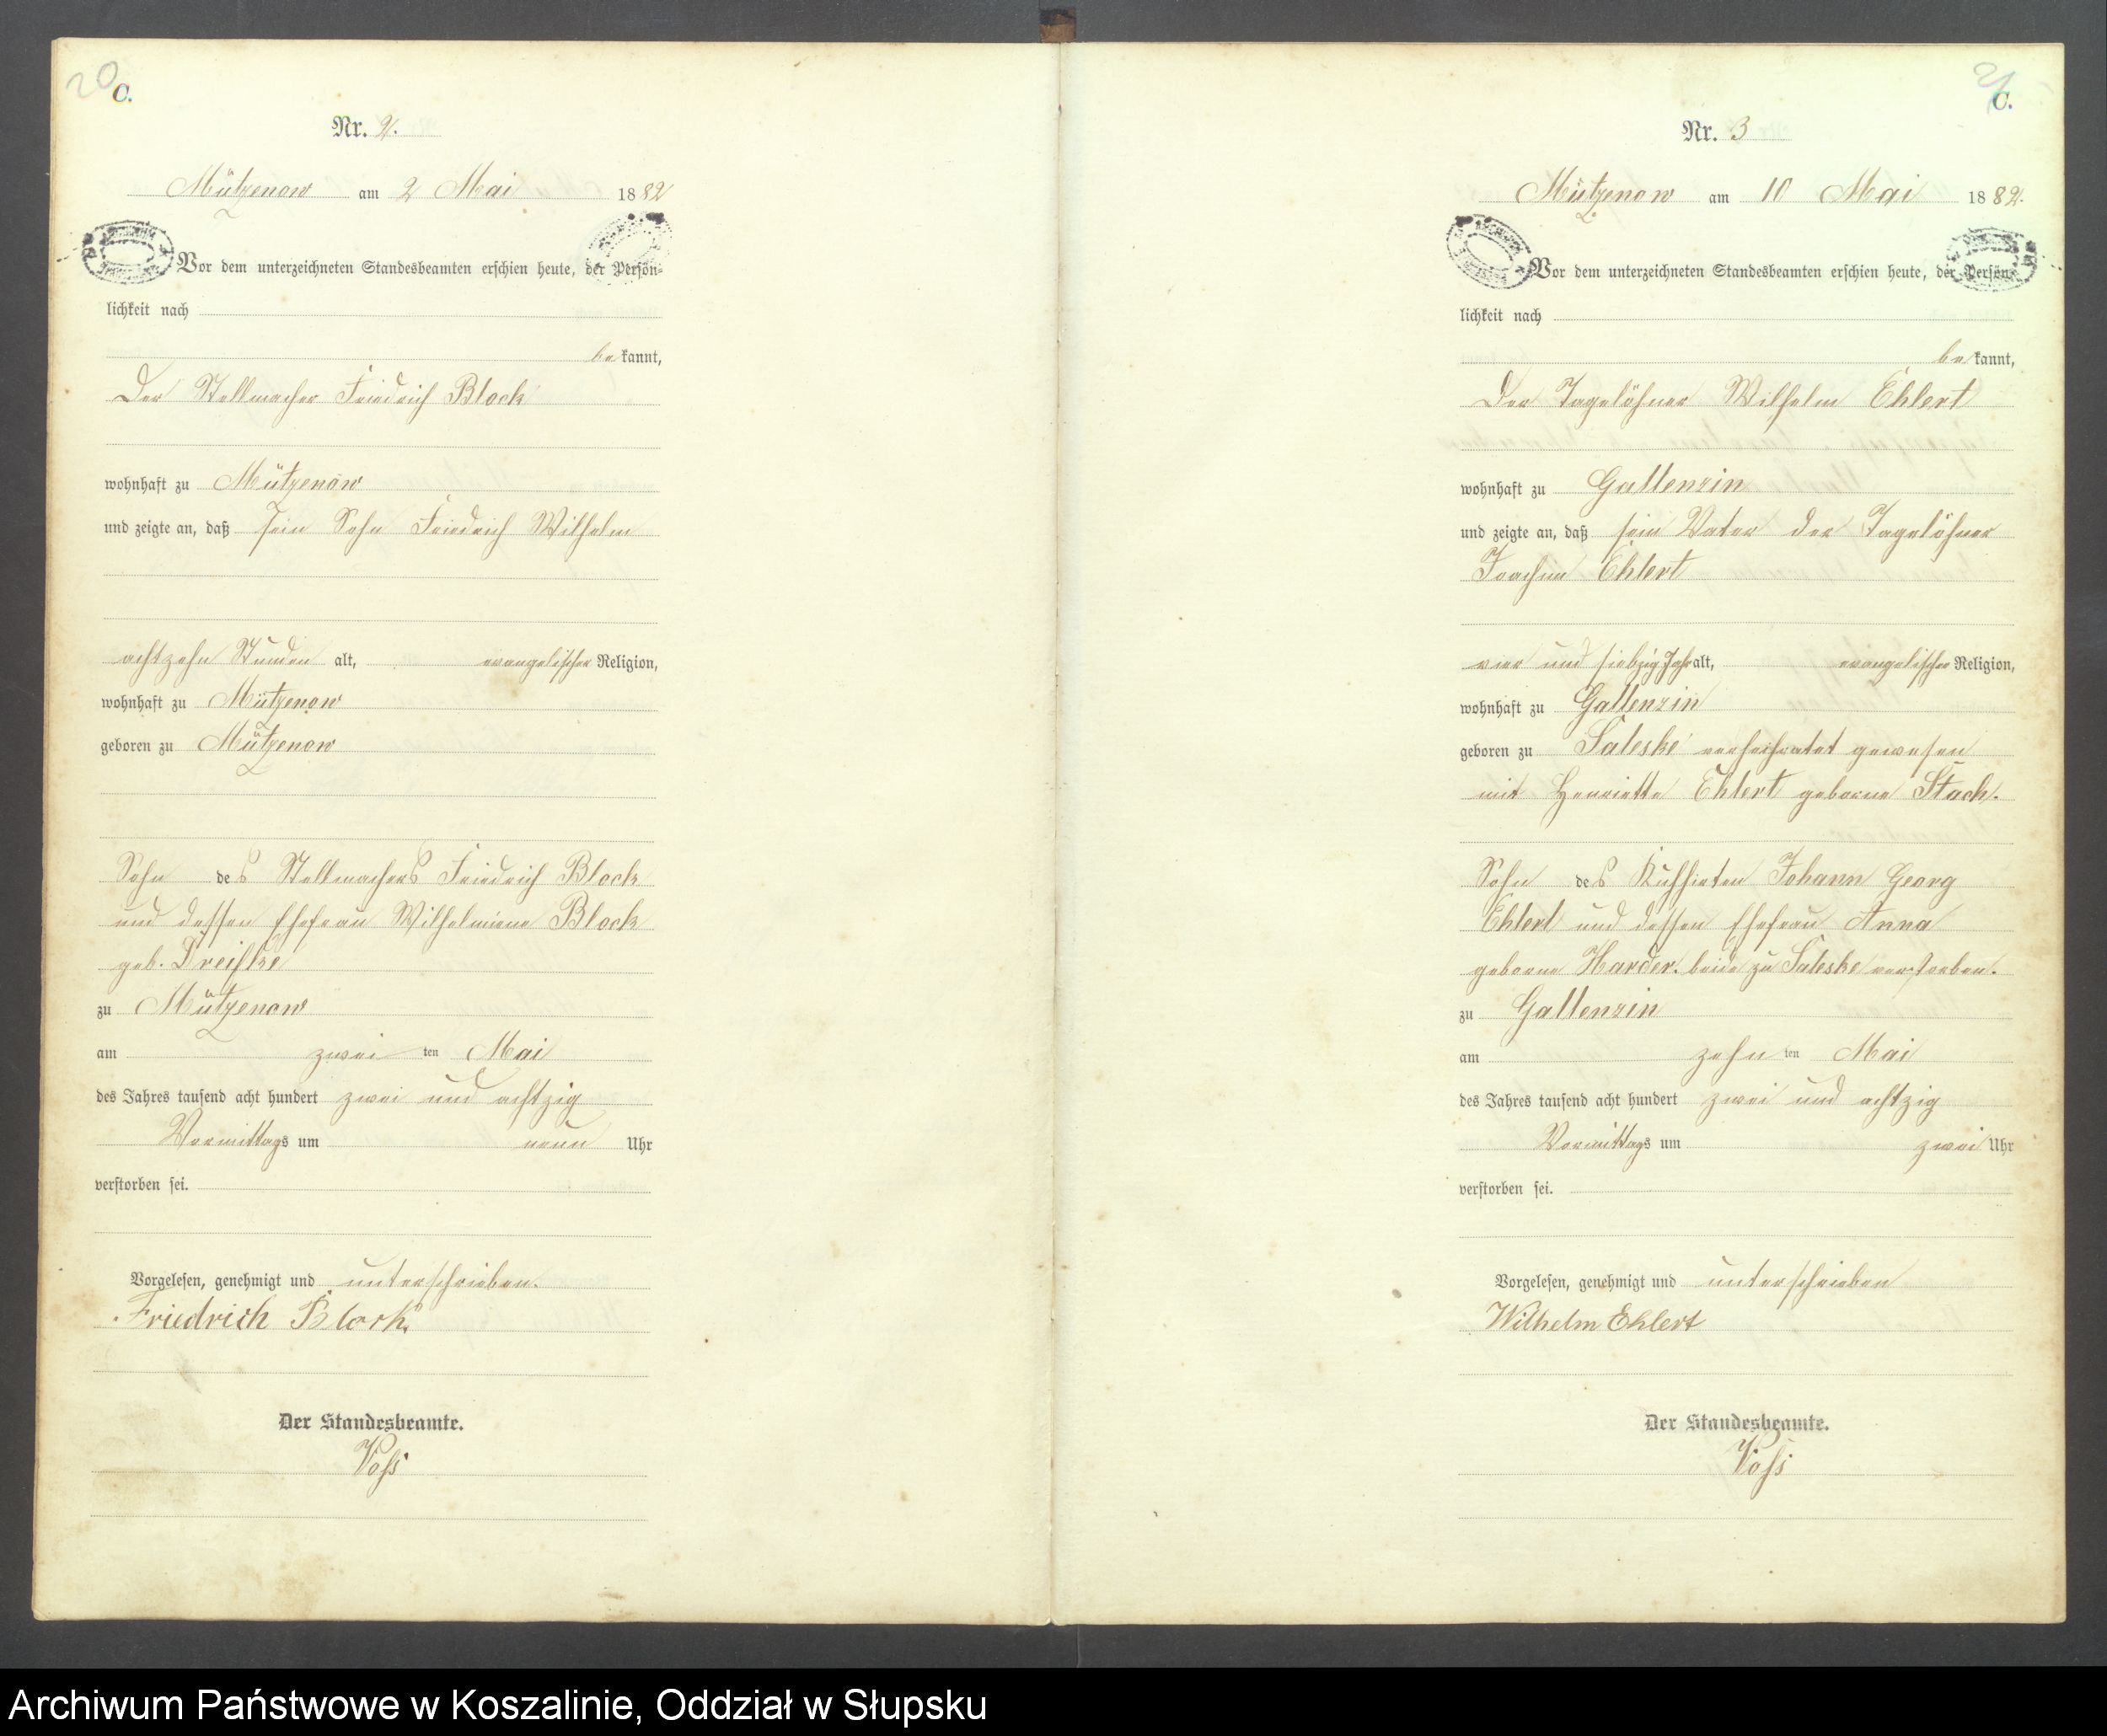 20
C.
Nr. 2.
Mützenow am 2 Mai 1882
Vor dem unterzeichneten Standesbeamten erschien heute, der Persön-
lichkeit nach
bekannt,
Der Stellmacher Friedrich Block
wohnhaft zu Mützenow
und zeigte an, daß sein Sohn Friedrich Wilhelm
achtzehn Stunden alt, evangelischer Religion,
wohnhaft zu Mützenow
geboren zu Mützenow
Sohn des Stellmachers Friedrich Block
und dessen Ehefrau Wilhelmine Block
geb.
zu Mützenow
am zwei ten Mai
des Jahres tausend acht hundert zwei und achtzig
Vormittags um neun Uhr
verstorben sei.
Vorgelesen, genehmigt und unterschrieben.
Friedrich Block.
Der Standesbeamte.
Voß
21
C.
Nr. 3
Mützenow am 10 Mai 1882.
Vor dem unterzeichneten Standesbeamten erschien heute, der Persön-
lichkeit nach
bekannt,
Der Tagelöhner Wilhelm Ehlert
wohnhaft zu Gallenzin
und zeigte an, daß sein Vater der Tagelöhner
Joachim Ehlert
vier und siebzig Jahr alt, evangelischer Religion,
wohnhaft zu Gallenzin
geboren zu Saleske verheirathet gewesen
mit Henriette Ehlert geborne Stach.
Sohn des Kuhhirten Johann Georg
Ehlert und dessen Ehefrau Anna
geborne Harder. beide zu Saleske verstorben.
zu Gallenzin
am zehn ten Mai
des Jahres tausend acht hundert zwei und achtzig
Vormittags um zwei Uhr
verstorben sei.
Vorgelesen, genehmigt und unterschrieben
Wilhelm Ehlert
Der Standesbeamte.
Voß
Archiwum Państwowe w Koszalinie, Oddział w Słupsku